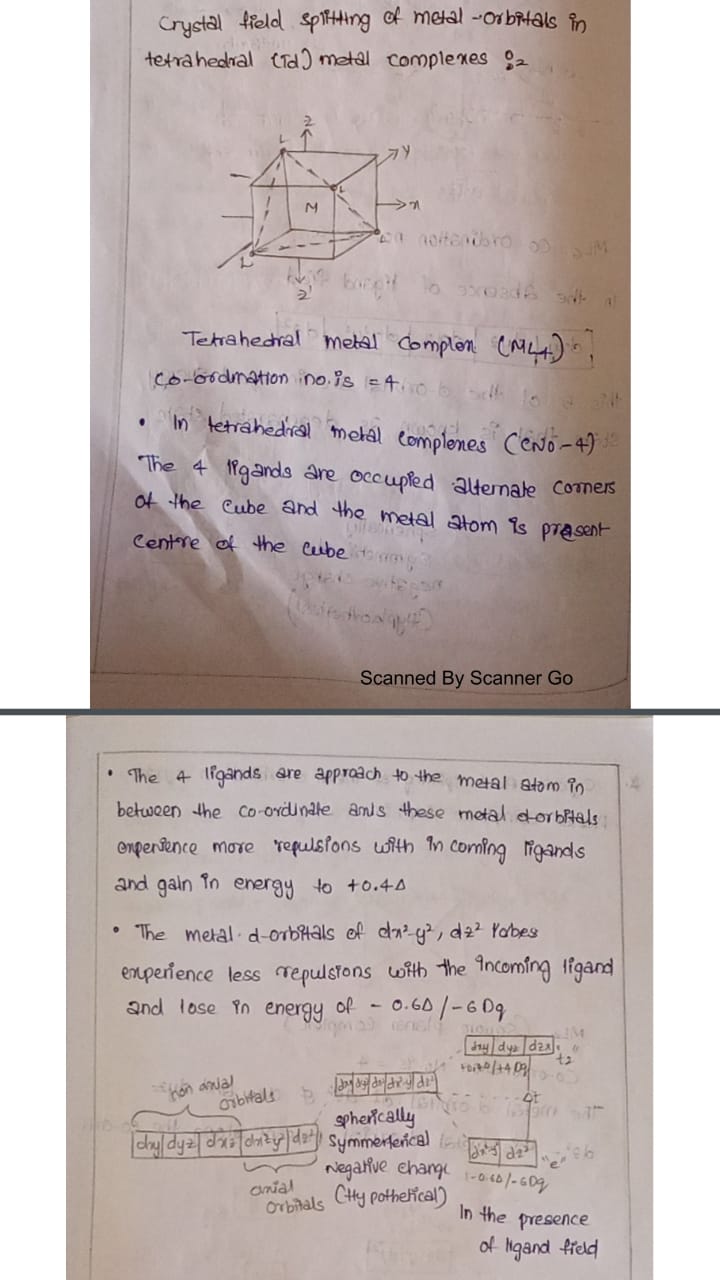 Crystal field splitting of metal -orbitals in
tetrahedral (Td) metal complexes :-
Z
L
Y
L
M
x
L
L
z'
Tetrahedral metal Complex (ML4)
Co-ordination no.is =4.
• In tetrahedral metal complexes (CNo-4)
The 4 ligands are occupied alternate corners
of the cube and the metal atom is present
Centre of the cube
Scanned By Scanner Go
• The 4 ligands are approach to the metal atom in
between the co-ordinate axis these metal d-orbitals
experience more repulsions with in coming ligands
and gain in energy to +0.4Δ
• The metal d-orbitals of dx²-y², dz² lobes
experience less repulsions with the incoming ligand
and lose in energy of - 0.6Δ/-6 Dq
dxy dyz dzx
t2
/+4 Dq
Δt
non axial
orbitals
dxy dyz dxz dx²y² dz²
axial
orbitals
spherically
Symmerterical
Negative charge
(Hy pothetical)
dx²-y² dz² "e"
-0.6Δ/-6Dq
In the presence
of ligand field